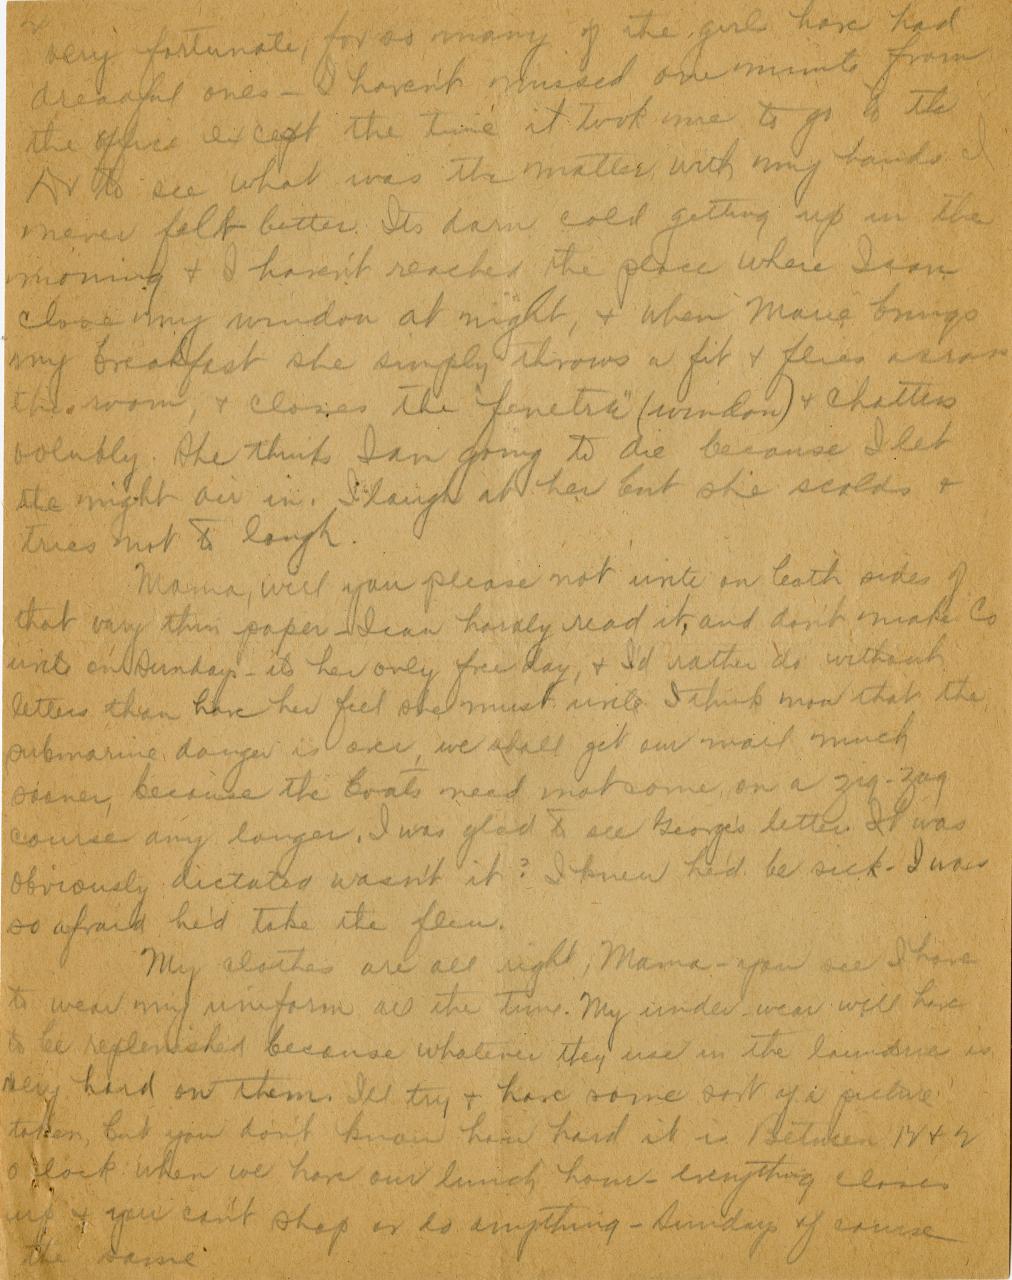 2
very fortunate, for so many of the girls have had
dreadful ones - I haven't missed one minute from
the office except the time it took me to go to the
Dr to see what was the matter with my hands I
never felt better. Its darn cold getting up in the
morning & I haven't reached the place where I can
close my window at night, & when Marie brings
my breakfast she simply throws a fit & flies across
the room, & closes the "fenetre" (window) & chatters
volubly. She thinks I am going to die because I let
the night air in. I laugh at her but she scolds &
tries not to laugh.
Mama, will you please not write on both sides of
that very thin paper - I can hardly read it, and don't make Co
write on Sunday - its her only free day, & I'd rather do without
letters than have her feel she must write. I think now that the
submarine danger is over, we shall get our mail much
sooner, because the boats need not come on a zig-zag
course any longer. I was glad to see George's letter. It was
obviously dictated wasn't it? I knew he'd be sick - I was
so afraid he'd take the flew.
My clothes are all right, Mama - you see I have
to wear my uniform all the time. My under-wear will have
to be replenished because whatever they use in the laundries is
very hard on them. I'll try & have some sort of a picture
taken, but you don't know how hard it is Between 12 & 2
o'clock when we have our lunch hour - everything closes
up & you can't shop or do anything - Sundays of course
the same